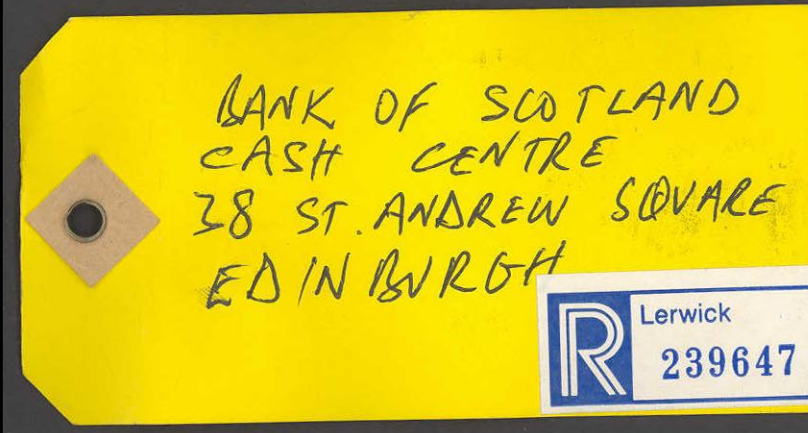 BANK OF SCOTLAND
CASH CENTRE
38 ST. ANDREW SQUARE
EDINBURGH
R Lerwick
239647